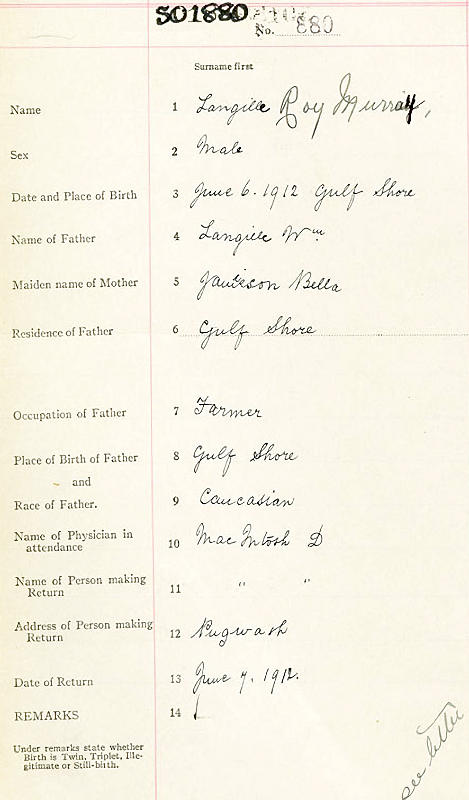 SO1880
No. 880
Surname first
Name 1 Langille Roy Murray,
Sex 2 Male
Date and Place of Birth 3 June 6. 1912 Gulf Shore
Name of Father 4 Langille Wm
Maiden name of Mother 5 Jackson Bella
Residence of Father 6 Gulf Shore
Occupation of Father 7 Farmer
Place of Birth of Father 8 Gulf Shore
and
Race of Father. 9 Caucasian
Name of Physician in
attendance 10 MacIntosh D
Name of Person making
Return 11 " "
Address of Person making
Return 12 Pugwash
Date of Return 13 June 7. 1912.
REMARKS 14
Under remarks state whether
Birth is Twin, Triplet, Ille-
gitimate or Still-birth.
see letter